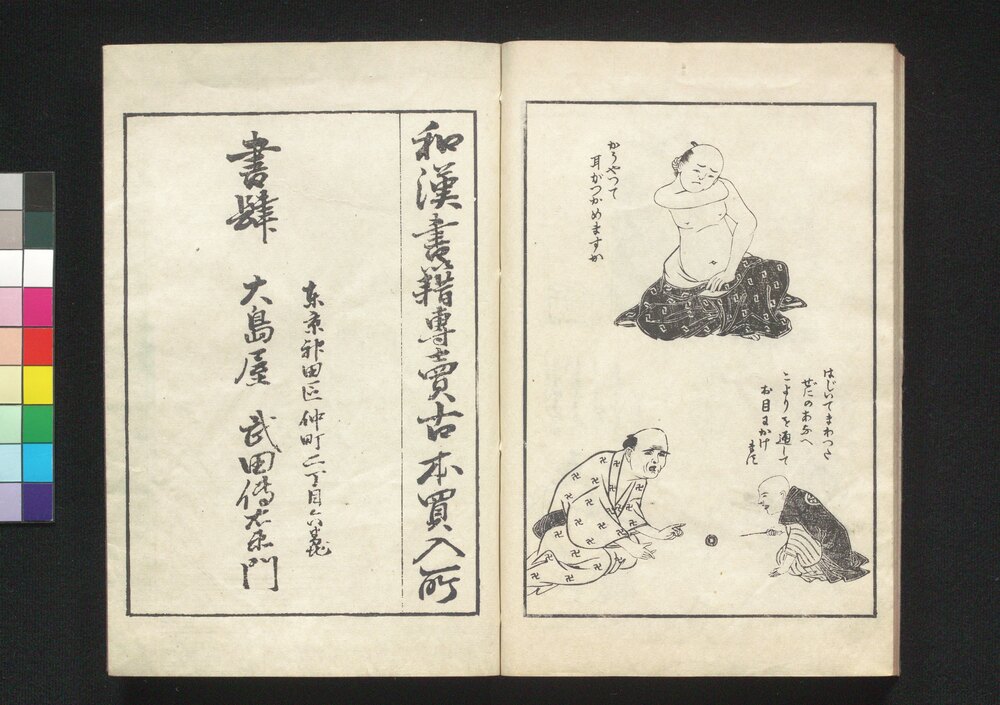 かうやつて
耳がつかめますか
はじいてまわつた
ぜにのあなへ
こよりを通して
お目にかけ
ます
和漢書籍専賣古本買入所
東京神田区仲町二丁目六番地
書肆 大島屋 武田傳右衛門